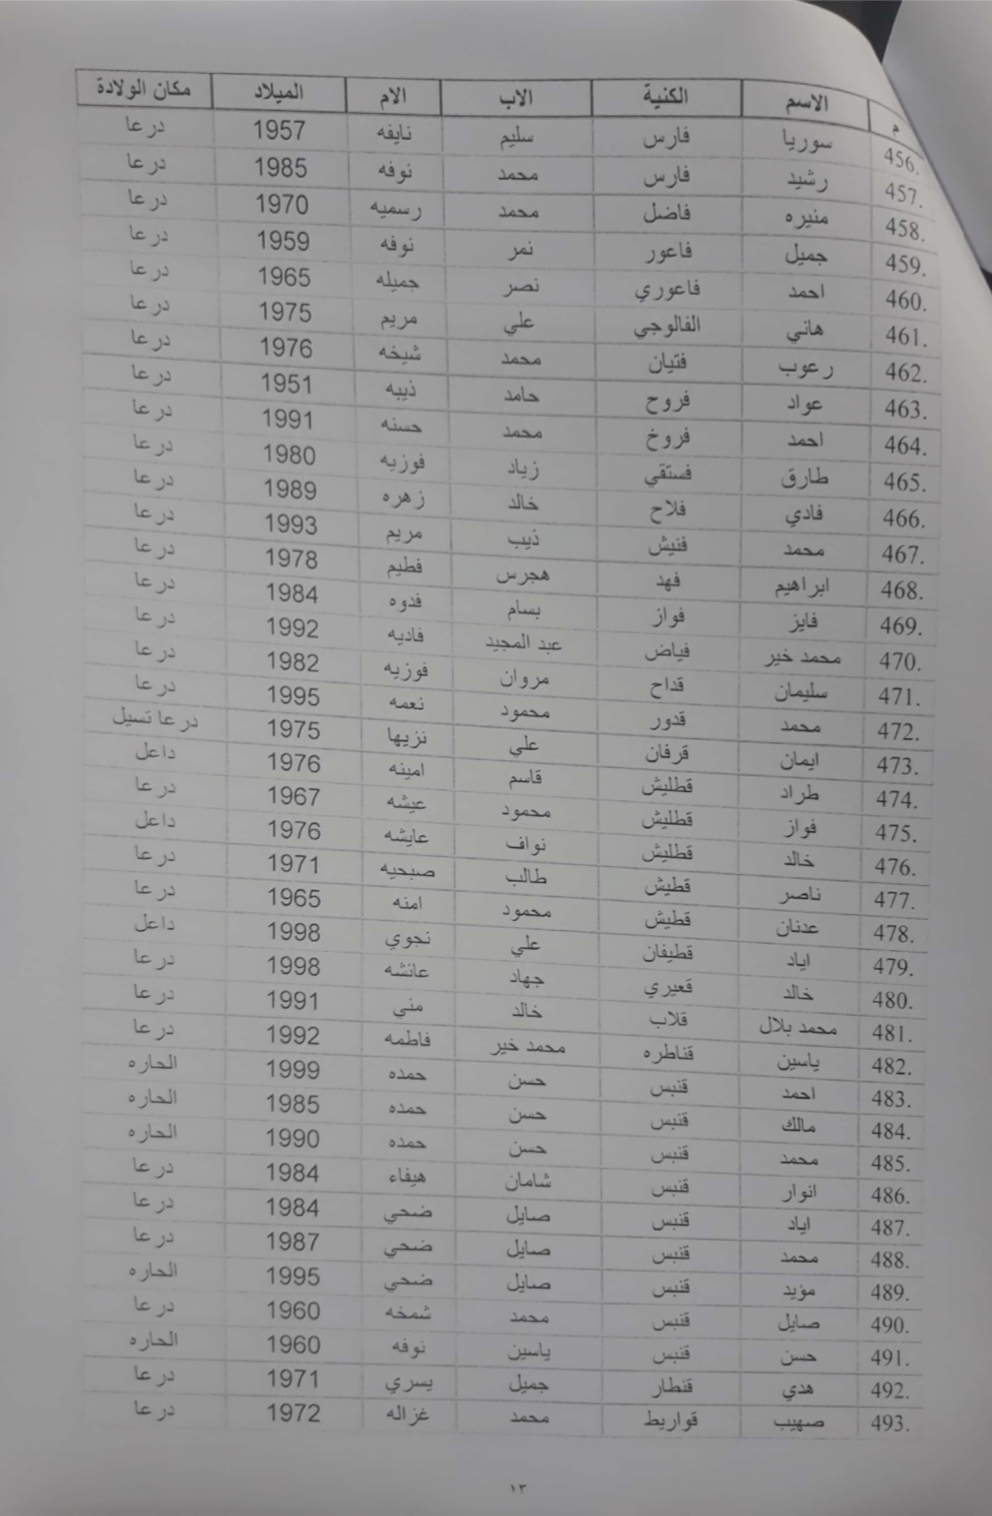 م الاسم الكنية الاب الام الميلاد مكان الولادة
456. سوريا فارس سليم نايفه 1957 درعا
457. رشيد فارس محمد نوفه 1985 درعا
458. منيره فاضل محمد رسميه 1970 درعا
459. جميل فاعور نمر نوفه 1959 درعا
460. احمد فاعوري نصر جميله 1965 درعا
461. هاني الفالوجي علي مريم 1975 درعا
462. رعوب فتيان محمد شيخه 1976 درعا
463. عواد فروح حامد ذيبه 1951 درعا
464. احمد فروخ محمد حسنه 1991 درعا
465. طارق فستقي زياد فوزيه 1980 درعا
466. فادي فلاح خالد زهره 1989 درعا
467. محمد فنيش ذيب مريم 1993 درعا
468. ابراهيم فهد هجرس فطيم 1978 درعا
469. فايز فواز بسام فدوه 1984 درعا
470. محمد خير فياض عبد المجيد فاديه 1992 درعا
471. سليمان قداح مروان فوزيه 1982 درعا
472. محمد قدور محمود نعمه 1995 درعا
473. ايمان قرفان علي نزيها 1975 درعا تسيل
474. طراد قطليش قاسم امينه 1976 داعل
475. فواز قطليش محمود عيشه 1967 درعا
476. خالد قطليش نواف عايشه 1976 داعل
477. ناصر قطيش طالب صبحيه 1971 درعا
478. عدنان قطيش محمود امنه 1965 درعا
479. اياد قطيفان علي نجوي 1998 داعل
480. خالد قعيري جهاد عائشه 1998 درعا
481. محمد بلال قلاب خالد مني 1991 درعا
482. ياسين قناطره محمد خير فاطمه 1992 درعا
483. احمد قنبس حسن حمده 1999 الحاره
484. مالك قنبس حسن حمده 1985 الحاره
485. محمد قنبس حسن حمده 1990 الحاره
486. انوار قنبس شامان هيفاء 1984 درعا
487. اياد قنبس صايل ضحي 1984 درعا
488. محمد قنبس صايل ضحي 1987 درعا
489. مؤيد قنبس صايل ضحي 1995 الحاره
490. صايل قنبس محمد شمخه 1960 درعا
491. حسن قنبس ياسين نوفه 1960 الحاره
492. هدي قنطار جميل يسري 1971 درعا
493. صهيب قواريط محمد غزاله 1972 درعا
١٣